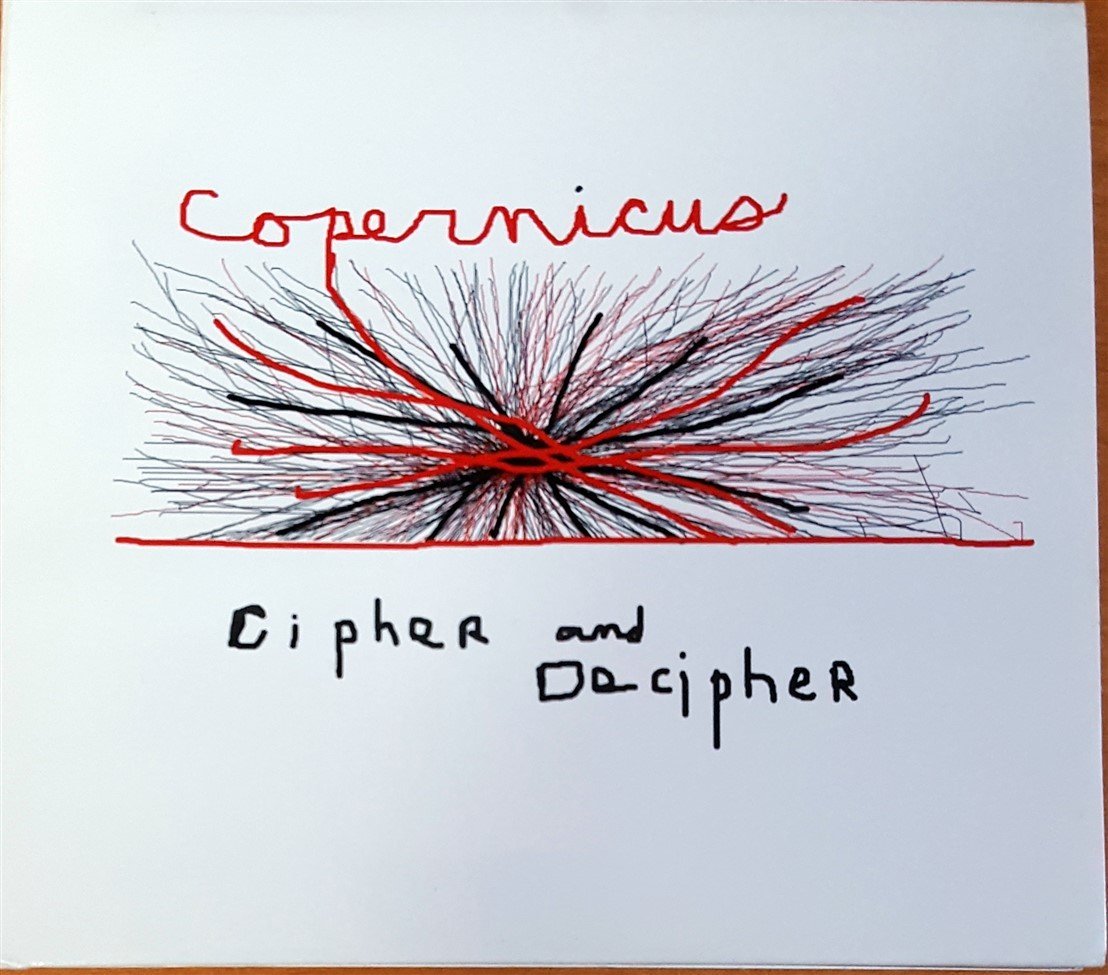 Copernicus
Cipher and
Decipher